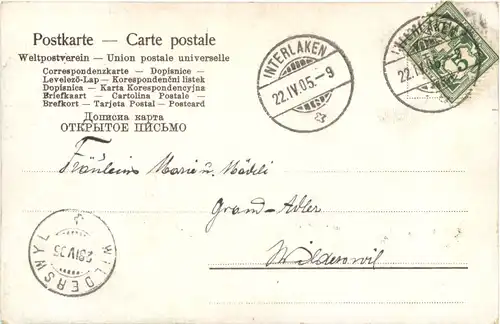 Postkarte — Carte postale
Weltpostverein — Union postale universelle
Correspondenzkarte — Dopisnice —
Levelező-Lap — Korespondenční listek
Dopisnica — Karta Korespondencyjna
Briefkaart — Cartolina Postale —
Brefkort — Tarjeta Postal — Postcard
Дописна карта
ОТКРЫТОЕ ПИСЬМО
INTERLAKEN
22.IV.05.-9
INTERLAKEN
22.IV.05.-9
5
Fräuleins Marie u. Mädeli
Grand-Adler
Wilderswil
WILDERSWYL